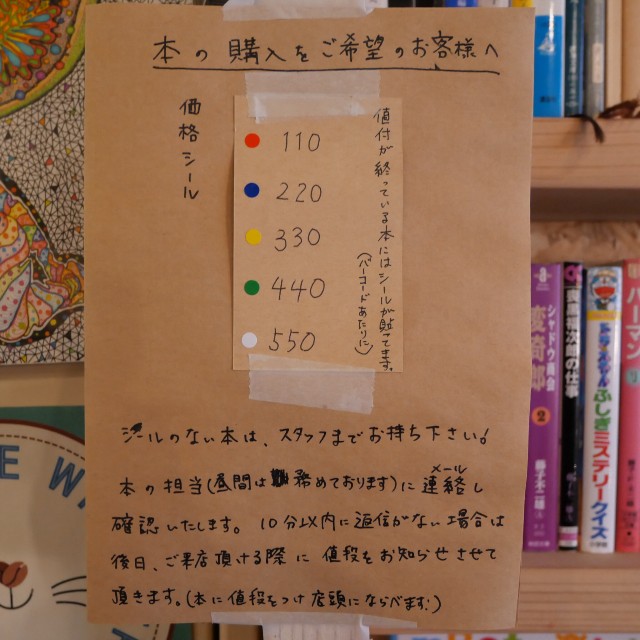 本の購入をご希望のお客様へ
価格シール
110
220
330
440
550
値付が終っている本にはシールが貼ってます。
(バーコードあたりに)
シールのない本は、スタッフまでお持ち下さい!
本の担当(昼間は務めております)に連絡し
メール
確認いたします。10分以内に返信がない場合は
後日、ご来店頂ける際に値段をお知らせさせて
頂きます。(本に値段をつけ店頭にならべます!)
シャドウ商会
変奇郎
2
藤子不二雄
ふしぎミステリークイズ
パーマン